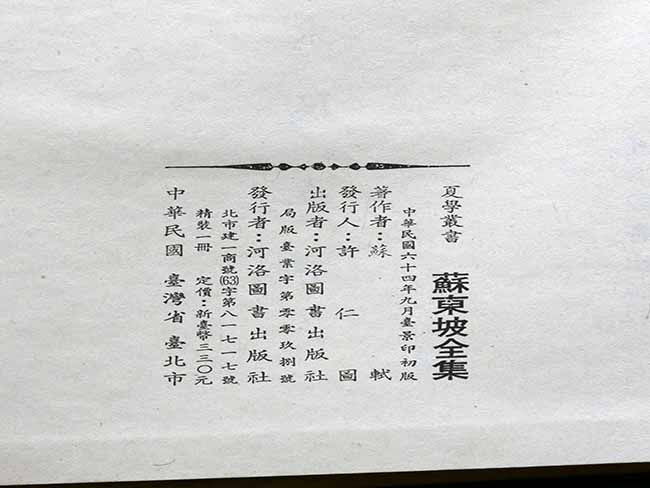 夏學叢書
蘇東坡全集
中華民國六十四年九月臺景印初版
著作者：蘇軾
發行人：許仁圖
出版者：河洛圖書出版社
局版臺業字第零零玖捌號
發行者：河洛圖書出版社
北市建一商號(63)字第八一七一七號
精裝一冊 定價：新臺幣三三〇元
中華民國 臺灣省 臺北市